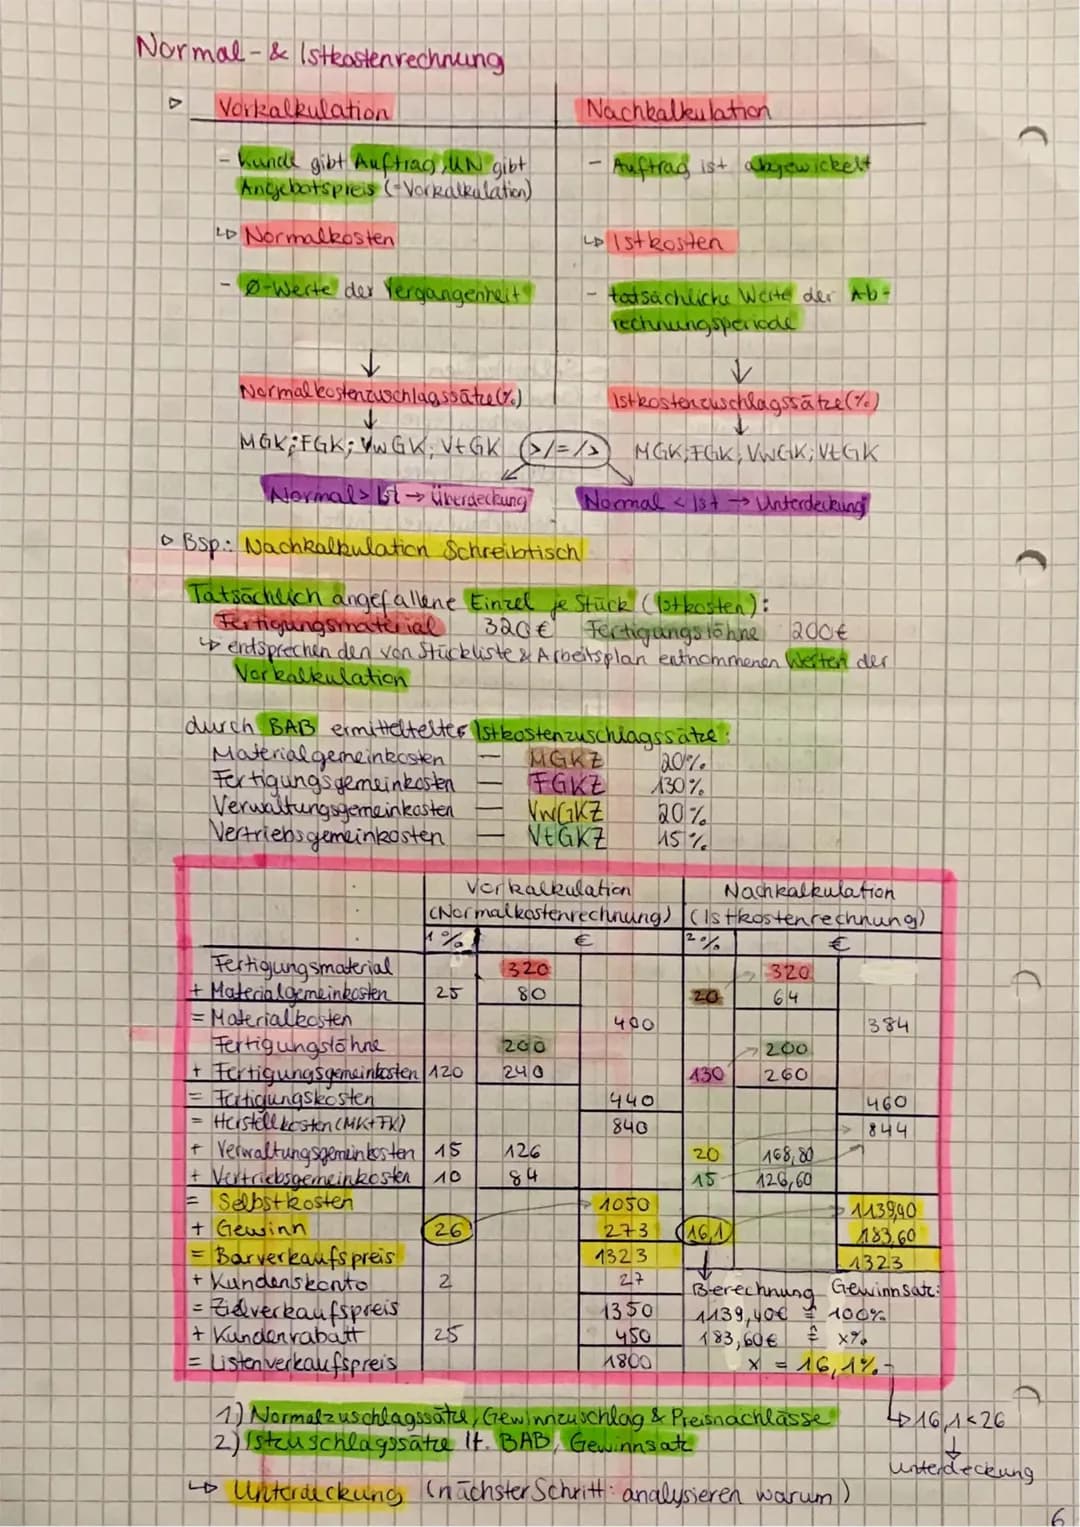 Normal- & Istkostenrechnung
▷ Vorkalkulation
Nachkalkulation
- Kunde gibt Auftrag, UN gibt
Angebotspreis (=Vorkalkulation)
- Auftrag ist abgewickelt
↳ Normalkosten
↳ Istkosten
- Ø-Werte der Vergangenheit
- tatsächliche Werte der Ab-
rechnungsperiode
↓
↓
Normalkostenzuschlagssätze (%)
Istkostenzuschlagssätze (%)
↓
↓
MGK; FGK; VwGK; VtGK (>/=/>) MGK; FGK; VwGK; VtGK
Normal > Ist → Überdeckung
Normal < Ist → Unterdeckung
▷ Bsp.: Nachkalkulation Schreibtisch
Tatsächlich angefallene Einzel je Stück (Istkosten):
Fertigungsmaterial 320€ Fertigungslöhne 200€
↳ entsprechen den von Stückliste & Arbeitsplan entnommenen Werten der
Vorkalkulation
durch BAB ermitteltelter Istkostenzuschlagssätze:
Materialgemeinkosten — MGKZ 20%
Fertigungsgemeinkosten — FGKZ 130%
Verwaltungsgemeinkosten — VwGKZ 20%
Vertriebsgemeinkosten — VtGKZ 15%
Vorkalkulation Nachkalkulation
(Normalkostenrechnung) (Istkostenrechnung)
1 % € 2 % €
Fertigungsmaterial 320 320
+ Materialgemeinkosten 25 80 20 64
= Materialkosten 400 384
Fertigungslöhne 200 200
+ Fertigungsgemeinkosten 120 240 130 260
= Fertigungskosten 440 460
= Herstellkosten (MK+FK) 840 844
+ Verwaltungsgemeinkosten 15 126 20 168,80
+ Vertriebsgemeinkosten 10 84 15 126,60
= Selbstkosten 1050 1139,40
+ Gewinn 26 273 16,1 183,60
= Barverkaufspreis 1323 1323
+ Kundenskonto 2 27 Berechnung Gewinnsatz:
= Zielverkaufspreis 1350 1139,40€ ≙ 100%
+ Kundenrabatt 25 450 183,60€ ≙ x%
= Listenverkaufspreis 1800 x = 16,1%
1) Normalzuschlagssätze, Gewinnzuschlag & Preisnachlässe
↳ 16,1 < 26
2) Istzuschlagssätze lt. BAB, Gewinnsatz
↓
Unterdeckung
↳ Unterdeckung (nächster Schritt: analysieren warum)
6